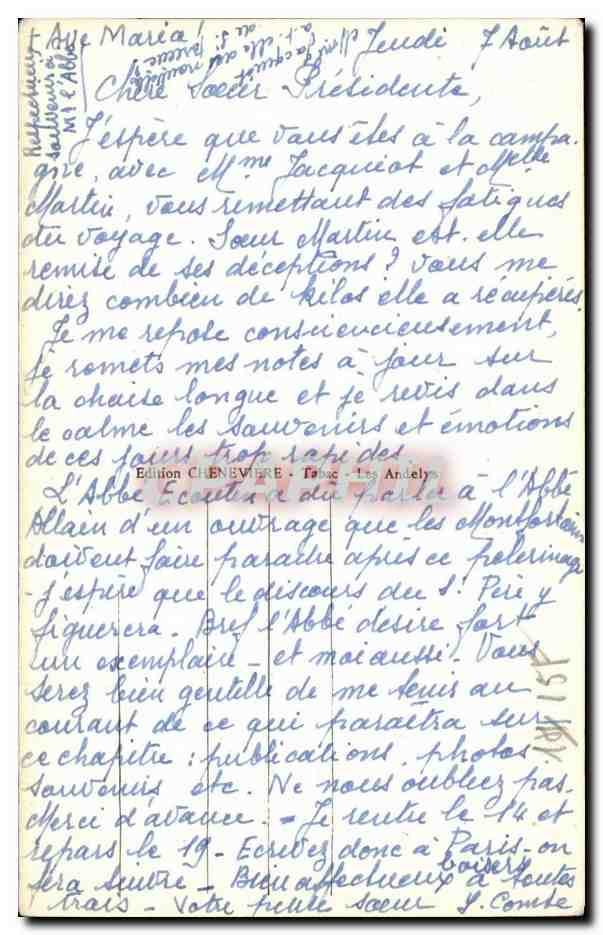 + Ave Maria!
Jeudi 7 Août
Respectueux
souvenir à
Mr l'Abbé
Chère Sœur Présidente,
J'espère que vous êtes à la campa-
gne, avec Mme Jacquiot et Melle
Martin, vous remettant des fatigues
du voyage. Sœur Martin est-elle
remise de ses déceptions? Vous me
direz combien de kilos elle a récupérés.
Je me repose consciencieusement,
je remets mes notes à jour sur
la chaise longue et je revis dans
le calme les souvenirs et émotions
de ces jours trop rapides.
Edition CHENEVIERE - Tabac - Les Andelys
L'Abbé a dû parler à l'Abbé
Allain d'un ouvrage que les Montfortains
doivent faire paraître après ce pèlerinage
- j'espère que le discours du S. Père y
figurera. Bref l'Abbé désire fort
un exemplaire - et moi aussi. Vous
serez bien gentille de me tenir au
courant de ce qui paraîtra sur
ce chapitre : publications, photos
souvenirs etc. Ne nous oubliez pas.
Merci d'avance. - Je rentre le 14 et
repars le 19 - Ecrivez donc à Paris - on
fera suivre - Bien affectueux baisers à toutes
trois - Votre petite sœur S. Combe